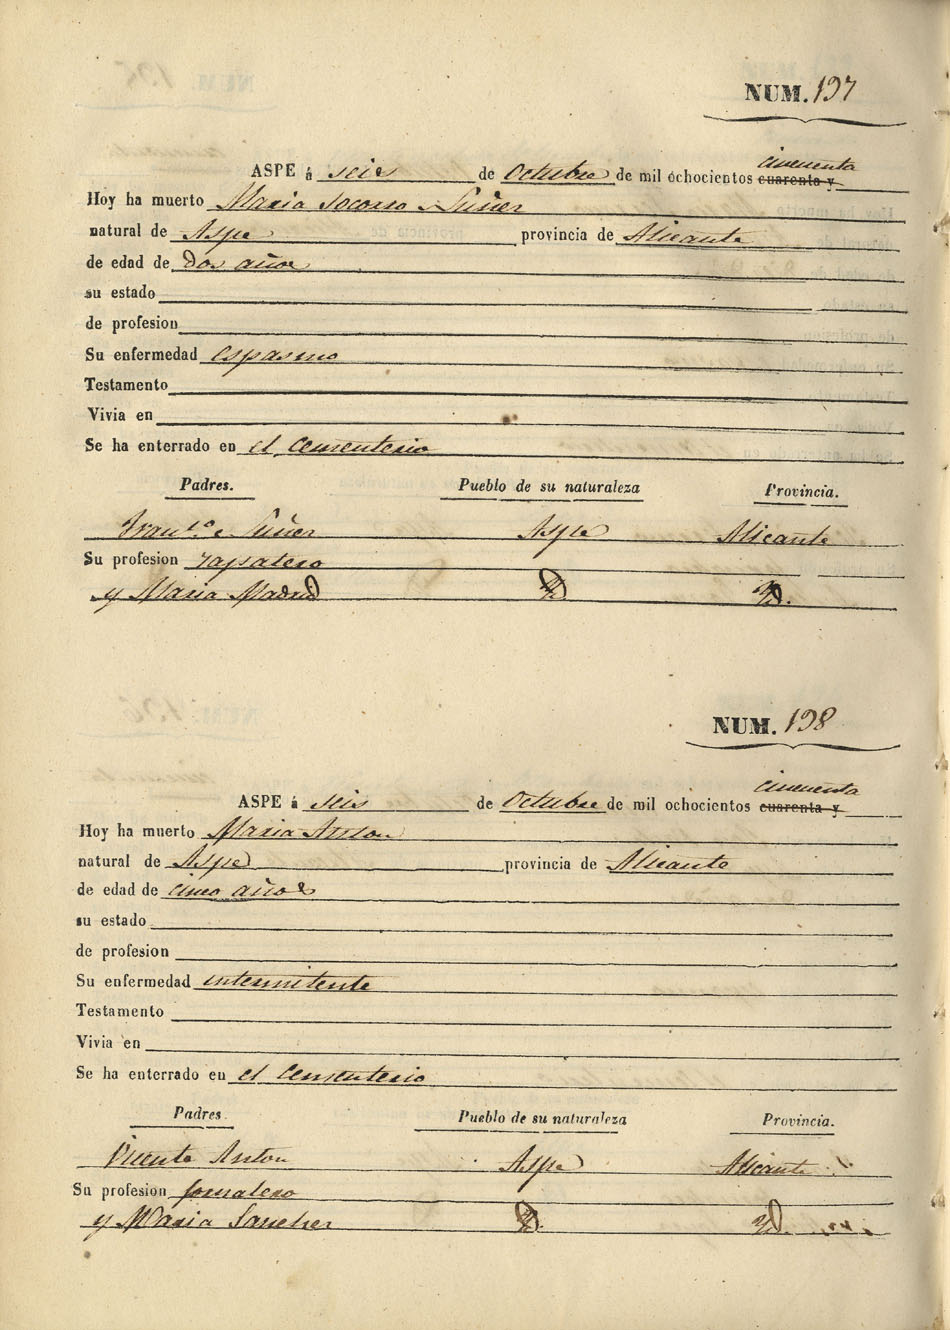 NUM. 197
cincuenta
ASPE á seis de Octubre de mil ochocientos cuarenta y
Hoy ha muerto Maria Socorro Suñer
natural de Aspe provincia de Alicante
de edad de dos años
su estado
de profesion
Su enfermedad espasmo
Testamento
Vivia en
Se ha enterrado en el Cementerio
Padres. Pueblo de su naturaleza Provincia.
Franco. Suñer Aspe Alicante
Su profesion zapatero
y Maria Madrid Yd. Yd.
NUM. 198
cincuenta
ASPE á seis de Octubre de mil ochocientos cuarenta y
Hoy ha muerto Maria Anton
natural de Aspe provincia de Alicante
de edad de cinco años
su estado
de profesion
Su enfermedad intermitente
Testamento
Vivia en
Se ha enterrado en el Cementerio
Padres. Pueblo de su naturaleza Provincia.
Vicente Anton Aspe Alicante
Su profesion jornalero
y Maria Sanchez Yd. Yd.